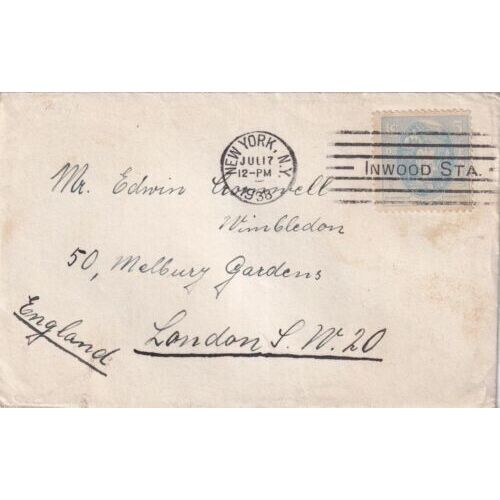 NEW YORK, N.Y.
JUL 17
12-PM
1938
INWOOD STA.
Mr. Edwin Cromwell
Wimbledon
50, Melbury Gardens
London S.W.20
England